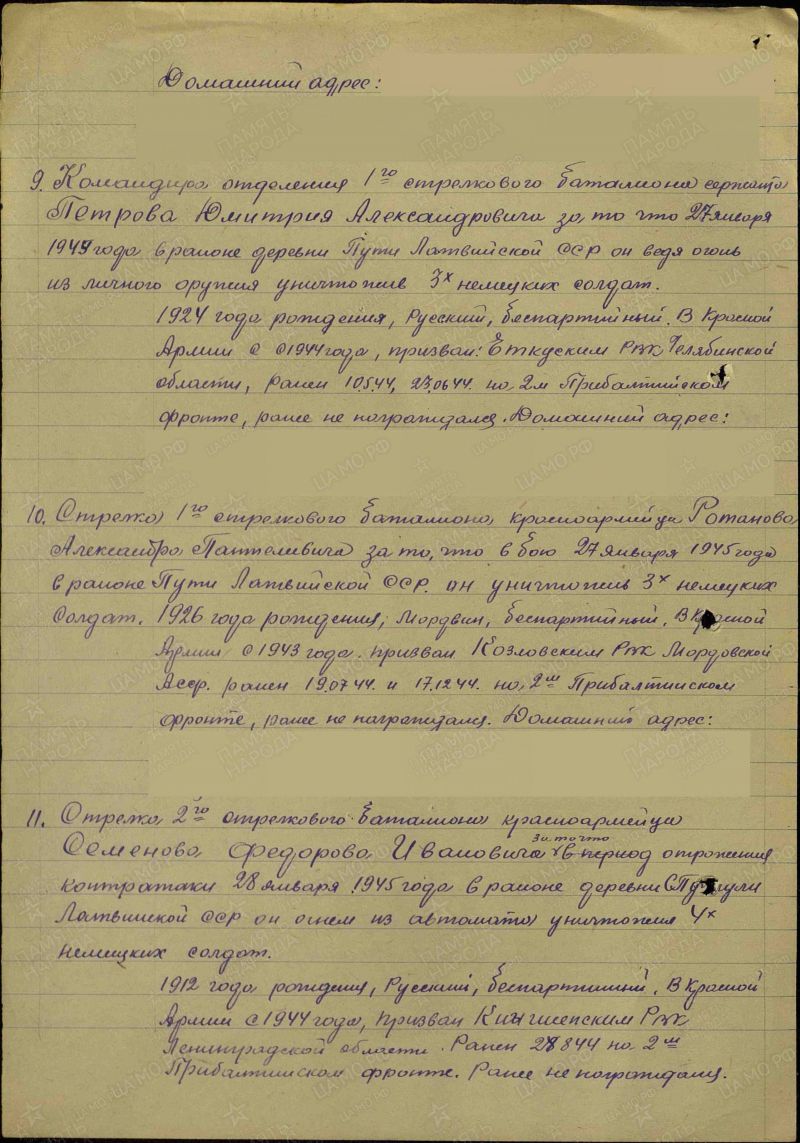 Домашний адрес:
9. Командира отделения 1го стрелкового баталиона сержанта
Петрова Дмитрия Александровича за то что 27 января
1945 года в районе деревни Пути Латвийской ССР он ведя огонь
из личного оружия уничтожив 3х немецких солдат.
1924 года рождения, Русский, беспартийный. В Красной
Армии с 1944 года, призван: Еткуским РВК Челябинской
области, ранен 10.5.44, 23.06.44. на 2м Прибалтийском
фронте, ранее не награждался. Домашний адрес:
10. Стрелка 1го стрелкового баталиона красноармейца Ротанова
Александра Пантелевича за то, что в бою 27 января 1945 года
в районе Пути Латвийской ССР. он уничтожив 3х немецких
солдат. 1926 года рождения, Мордвин, беспартийный. В Красной
Армии с 1943 года. призван Козловским РВК Мордовской
Асср. ранен 19.07.44. и 17.12.44. на 2м Прибалтийском
фронте, ранее не награждался. Домашний адрес:
11. Стрелка 2го стрелкового баталиона красноармейца
Семенова Федорова Ивановича за то что в период отражения
контратаки 28 января 1945 года в районе деревни
Латвийской ССР он огнем из автомата уничтожил 4х
немецких солдат.
1912 года рождения, Русский, беспартийный. В Красной
Армии с 1944 года, призван Кингисепским РВК
Ленинградской области. Ранен 28 8 44 на 2м
Прибалтийском фронте. Ранее не награждался.